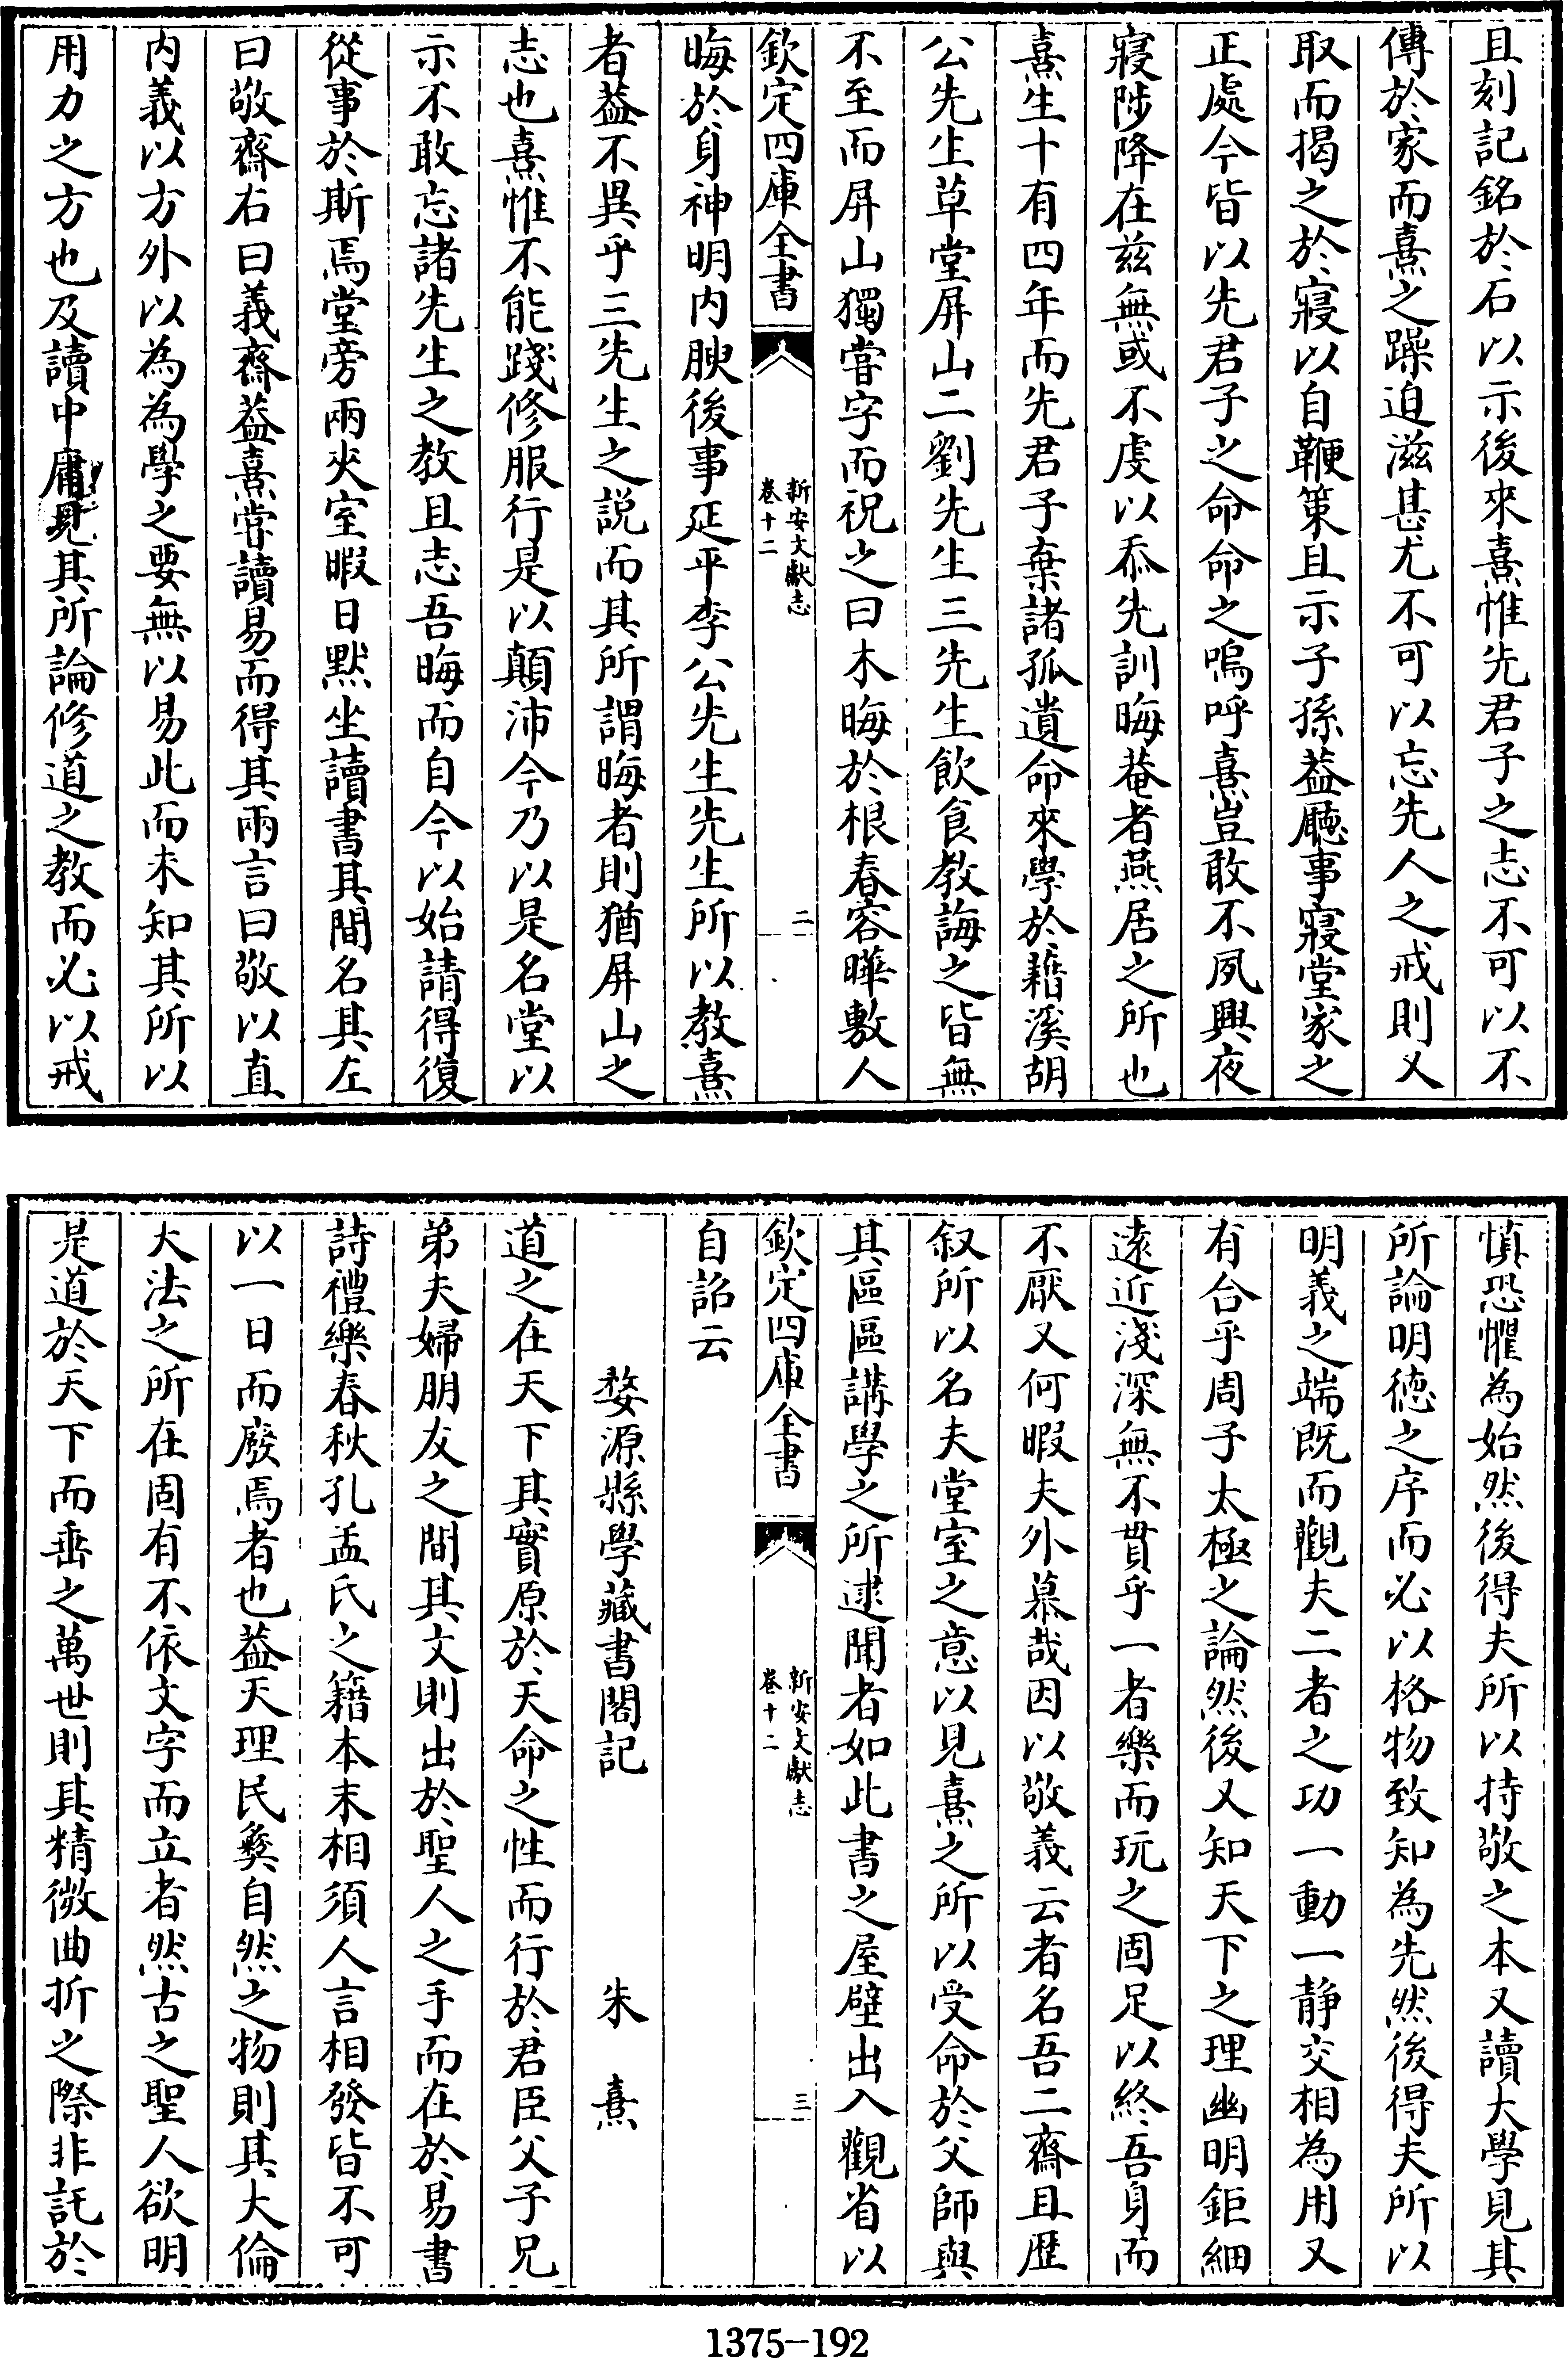 且刻記銘於石以示後來熹惟先君子之志不可以不
傳於家而熹之躁迫滋甚尤不可以忘先人之戒則又
取而揭之於寢以自鞭策且示子孫葢廳事寢堂家之
正處今皆以先君子之命命之嗚呼熹豈敢不夙興夜
寢陟降在兹無或不虔以忝先訓晦菴者燕居之所也
熹生十有四年而先君子棄諸孤遺命來學於籍溪胡
公先生草堂屏山二劉先生三先生飲食教誨之皆無
不至而屏山獨嘗字而祝之曰木晦於根春容曄敷人
欽定四庫全書
新安文獻志
卷十二
二
晦於身神明内腴後事延平李公先生先生所以教熹
者葢不異乎三先生之説而其所謂晦者則猶屏山之
志也熹惟不能踐修服行是以顛沛今乃以是名堂以
示不敢忘諸先生之教且志吾晦而自今以始請得復
從事於斯焉堂旁兩夾室暇日默坐讀書其間名其左
曰敬齋右曰義齋葢熹嘗讀易而得其兩言曰敬以直
内義以方外以為為學之要無以易此而未知其所以
用力之方也及讀中庸見其所論修道之教而必以戒
慎恐懼為始然後得夫所以持敬之本又讀大學見其
所論明德之序而必以格物致知為先然後得夫所以
明義之端既而觀夫二者之功一動一静交相為用又
有合乎周子太極之論然後又知天下之理幽明鉅細
遠近淺深無不貫乎一者樂而玩之固足以終吾身而
不厭又何暇夫外慕哉因以敬義云者名吾二齋且歴
叙所以名夫堂室之意以見熹之所以受命於父師與
其區區講學之所逮聞者如此書之屋壁出入觀省以
欽定四庫全書
新安文獻志
卷十二
三
自詔云
婺源縣學藏書閣記 朱熹
道之在天下其實原於天命之性而行於君臣父子兄
弟夫婦朋友之間其文則出於聖人之手而在於易書
詩禮樂春秋孔孟氏之籍本末相須人言相發皆不可
以一日而廢焉者也葢天理民彝自然之物則其大倫
大法之所在固有不依文字而立者然古之聖人欲明
是道於天下而垂之萬世則其精微曲折之際非託於
1375-192